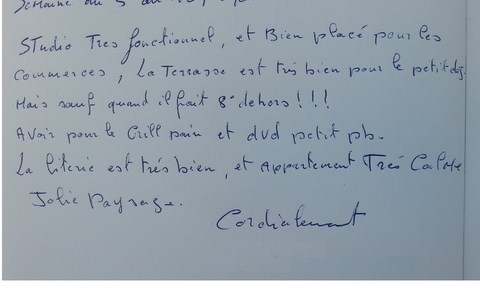 Semaine du 5 au
STudio Tres fonctionnel, et Bien placé pour les
Commerces, La Terrasse est très bien pour le petit dej.
Mais sauf quand il fait 8° dehors!!!
Avoir pour le Grill pain et dvd petit pb.
La literie est très bien, et Appartement Tres Calme
Jolie Paysage.
Cordialement